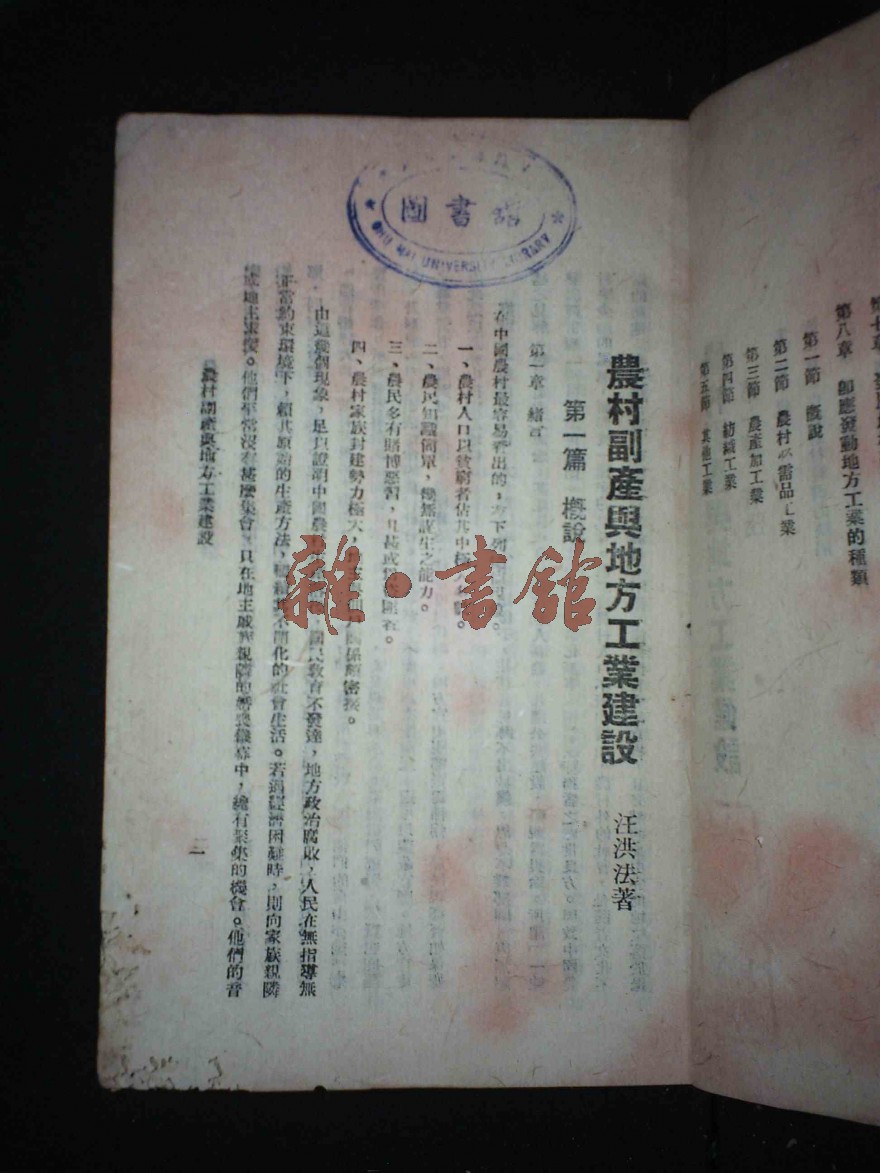 第八章 即應發動地方工業的種類
第一節 概說
第二節 農村必需品工業
第三節 農產加工業
第四節 紡織工業
第五節 其他工業
圖書館
農村副產與地方工業建設
汪洪法著
第一篇 概說
第一章 緒言
在中國農村最容易看出的,有下列
一、農村人口以貧窮者佔其中極大
二、農民知識簡單,幾無謀生之能力。
三、農民多有賭博惡習,且甚或
四、農村家族封建勢力極大,關係極密接。
由這幾個現象,足以證明中國農國民教育不發達,地方政治腐敗,人民在無指導無
正當約束環境下,賴其原始的生產方法,不開化的社會生活。若遇經濟困難時,則向家族親隣
或地主東懇。他們平常沒有甚麼集會,只在地主戚族親隣的婚喪儀節中,纔有聚集的機會。他們的音
農村副產與地方工業建設
一
雜·書館